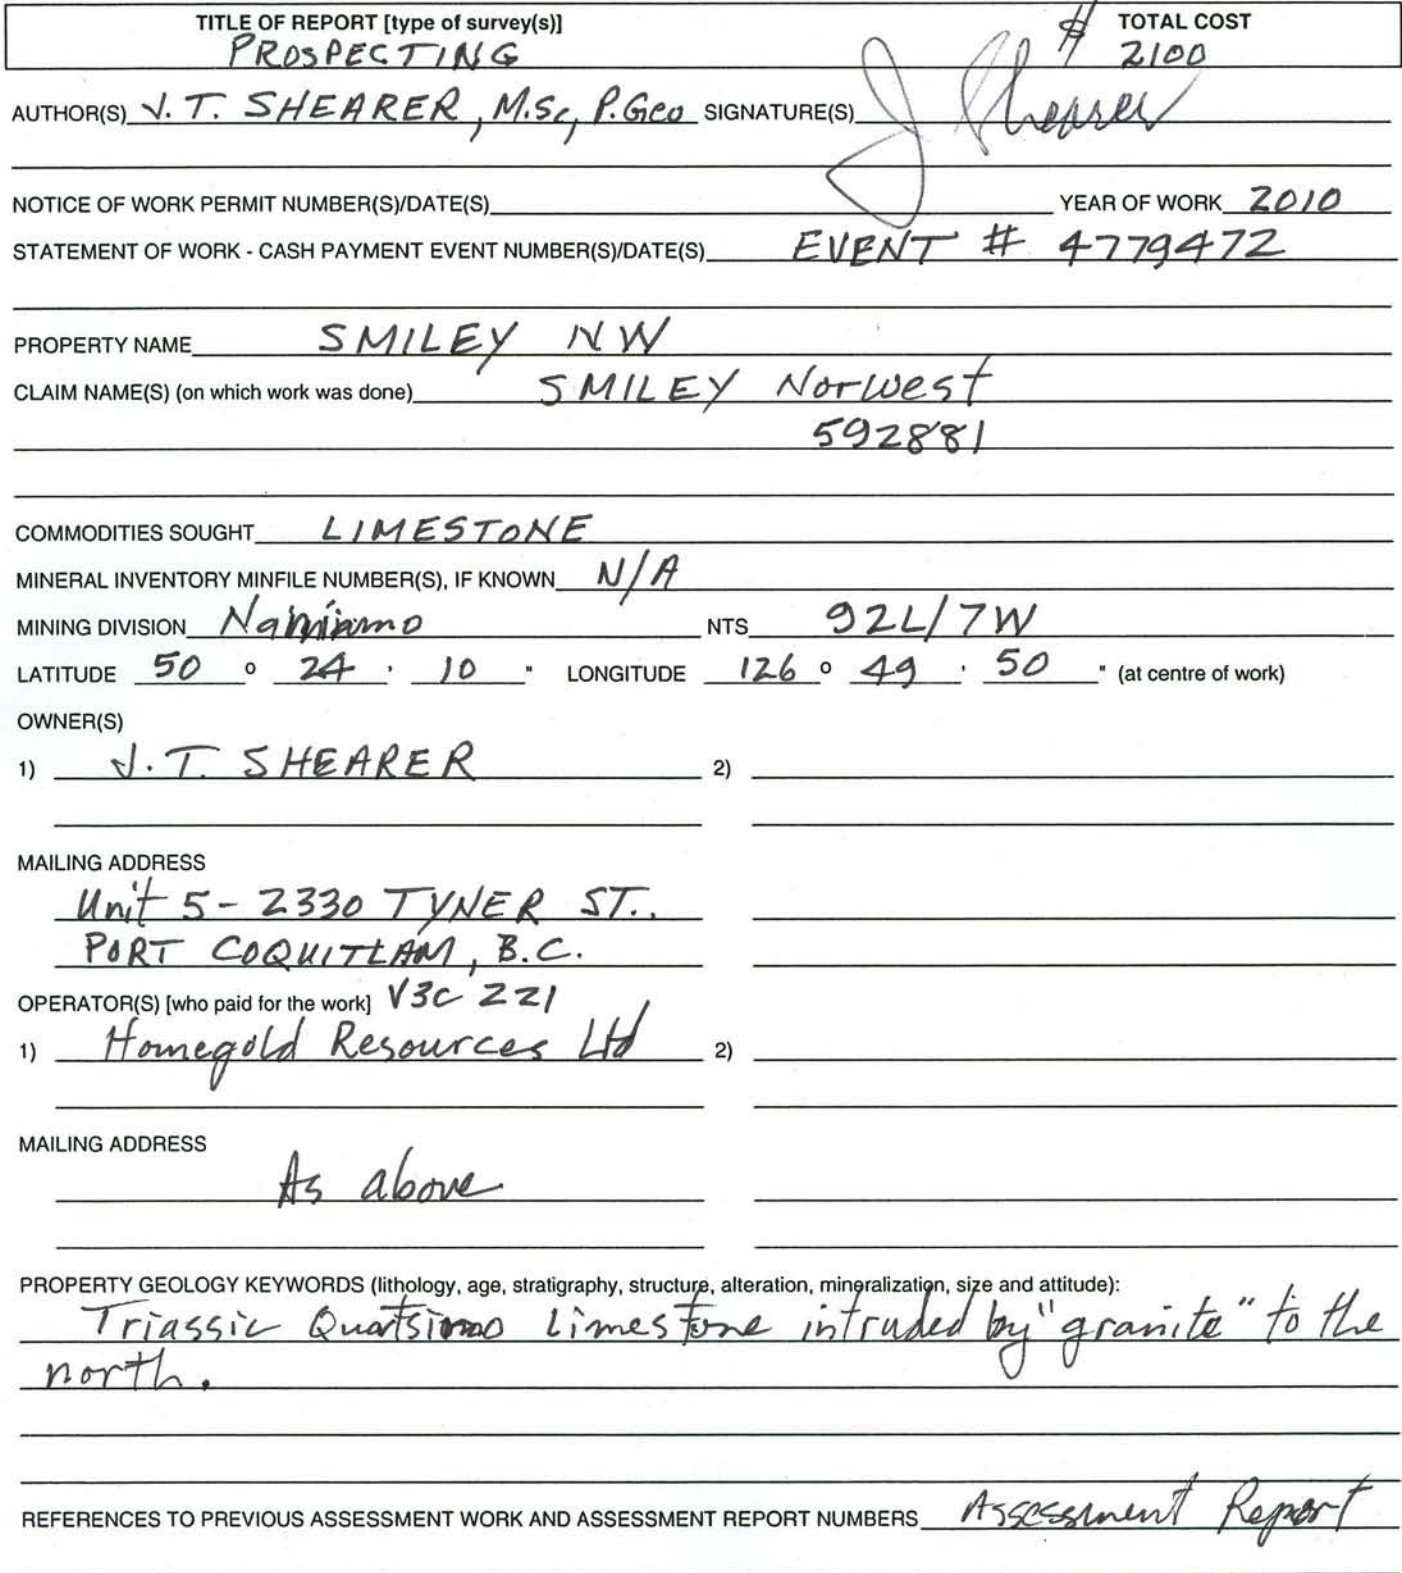 TITLE OF REPORT [type of survey(s)] TOTAL COST
PROSPECTING $ 2100
AUTHOR(S) J. T. SHEARER, M.Sc, P.Geo SIGNATURE(S) J Shearer
NOTICE OF WORK PERMIT NUMBER(S)/DATE(S) YEAR OF WORK 2010
STATEMENT OF WORK - CASH PAYMENT EVENT NUMBER(S)/DATE(S) EVENT # 4779472
PROPERTY NAME SMILEY NW
CLAIM NAME(S) (on which work was done) SMILEY Norwest
592881
COMMODITIES SOUGHT LIMESTONE
MINERAL INVENTORY MINFILE NUMBER(S), IF KNOWN N/A
MINING DIVISION Naniamo NTS 92L/7W
LATITUDE 50 ° 24 ' 10 " LONGITUDE 126 ° 49 ' 50 " (at centre of work)
OWNER(S)
1) J. T. SHEARER 2)
MAILING ADDRESS
Unit 5 - 2330 TYNER ST.,
PORT COQUITLAM, B.C.
OPERATOR(S) [who paid for the work] V3C 2Z1
1) Homegold Resources Ltd 2)
MAILING ADDRESS
As above
PROPERTY GEOLOGY KEYWORDS (lithology, age, stratigraphy, structure, alteration, mineralization, size and attitude):
Triassic Quatsino Limestone intruded by "granite" to the
north.
REFERENCES TO PREVIOUS ASSESSMENT WORK AND ASSESSMENT REPORT NUMBERS Assessment Report